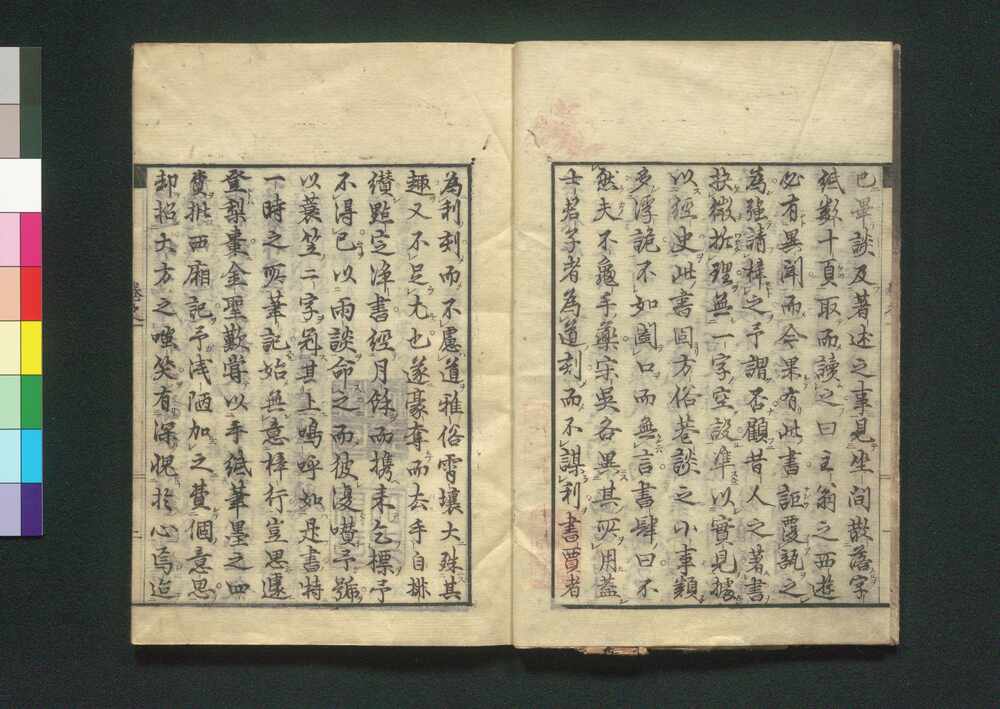 已畢談及著述之事見坐間散落字
紙数十頁取而讀之曰主翁之西遊
必有異聞而今果有此書詎覆瓿之
為強請梓之予謂否顧昔人之著書
抉微拆理無一字空設準以實見據
以經史此書固方俗巷談之小事類
多浮詭不如闔口而無言書肆曰不
然夫不龜手藥宋吳各異其所用蓋
士君子者為道刻而不謀利書賈者
為利刻而不慮道雅俗霄壤大殊其
趣又不足尤也遂豪奪而去手自排
纉點定淨書經月餘而携来乞標予
不得已以雨談命之而彼漫囋予號
以蓑笠二字冠其上嗚呼如是書特
一時之所筆記始無意梓行豈思遽
登梨棗金聖歎嘗以手紙筆墨之四
費批西廂記予浅陋加之費個意思
却招大方之嗤笑有深愧於心焉迨